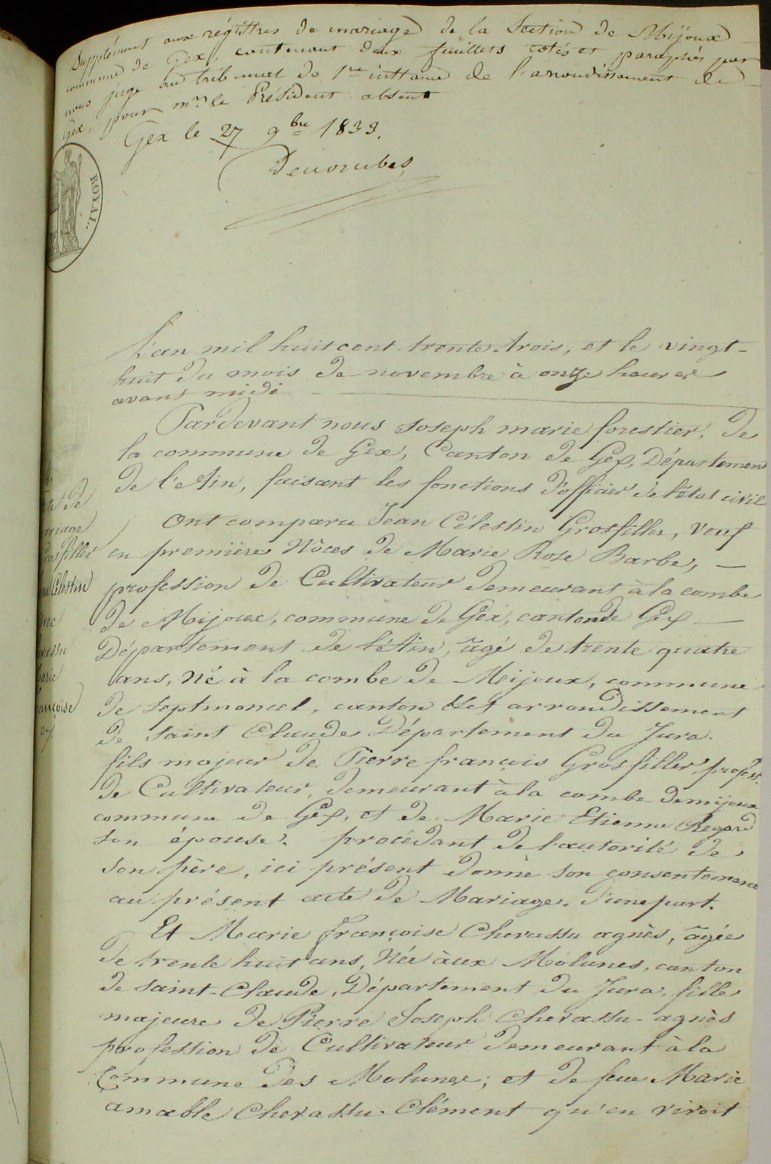 Supplément aux régistres de mariage de la Section de Mijoux
commune de Gex, contenant deux feuillets cotés et paraphés par
nous juge au tribunal de 1re instance de l'arrondissement de
Gex, pour mr. le Président absent
Gex le 27 9bre 1833.
ROYAL.
L'an mil huit cent trente-trois, et le vingt-
huit du mois de novembre à onze heures
avant midi
Pardevant nous Joseph marie forestier, de
la commune de Gex, Canton de Gex, Département
de l'Ain, faisant les fonctions d'officier de l'état civil
Ont comparu Jean Célestin Grosfiller, Veuf
en premières Nôces de Marie Rose Barbe,
profession de Cultivateur demeurant à la combe
de Mijoux, commune de Gex, canton de Gex
Département de l'Ain, âgé de trente quatre
ans, Né à la combe de Mijoux, commune
de Septmoncel, canton et arrondissement
de Saint Claude Département du Jura.
fils majeur de Pierre françois Grosfiller profesn.
de Cultivateur, demeurant à la combe demijoux
commune de Gex, et de Marie Etienne Regard
son épouse. procédant de l'autorité de
son père, ici présent donne son consentement
au présent acte de Mariage. d'une part.
Et Marie françoise Chevassu agnès, âgée
de trente huit ans, Née aux Molunes, canton
de Saint-Claude, Département du Jura, fille
majeure de Pierre Joseph Chevassu-agnès
profession de Cultivateur demeurant à la
Commune des Molunes; et de feue Marie
amable Chevassu-Clément qu'en vivoit